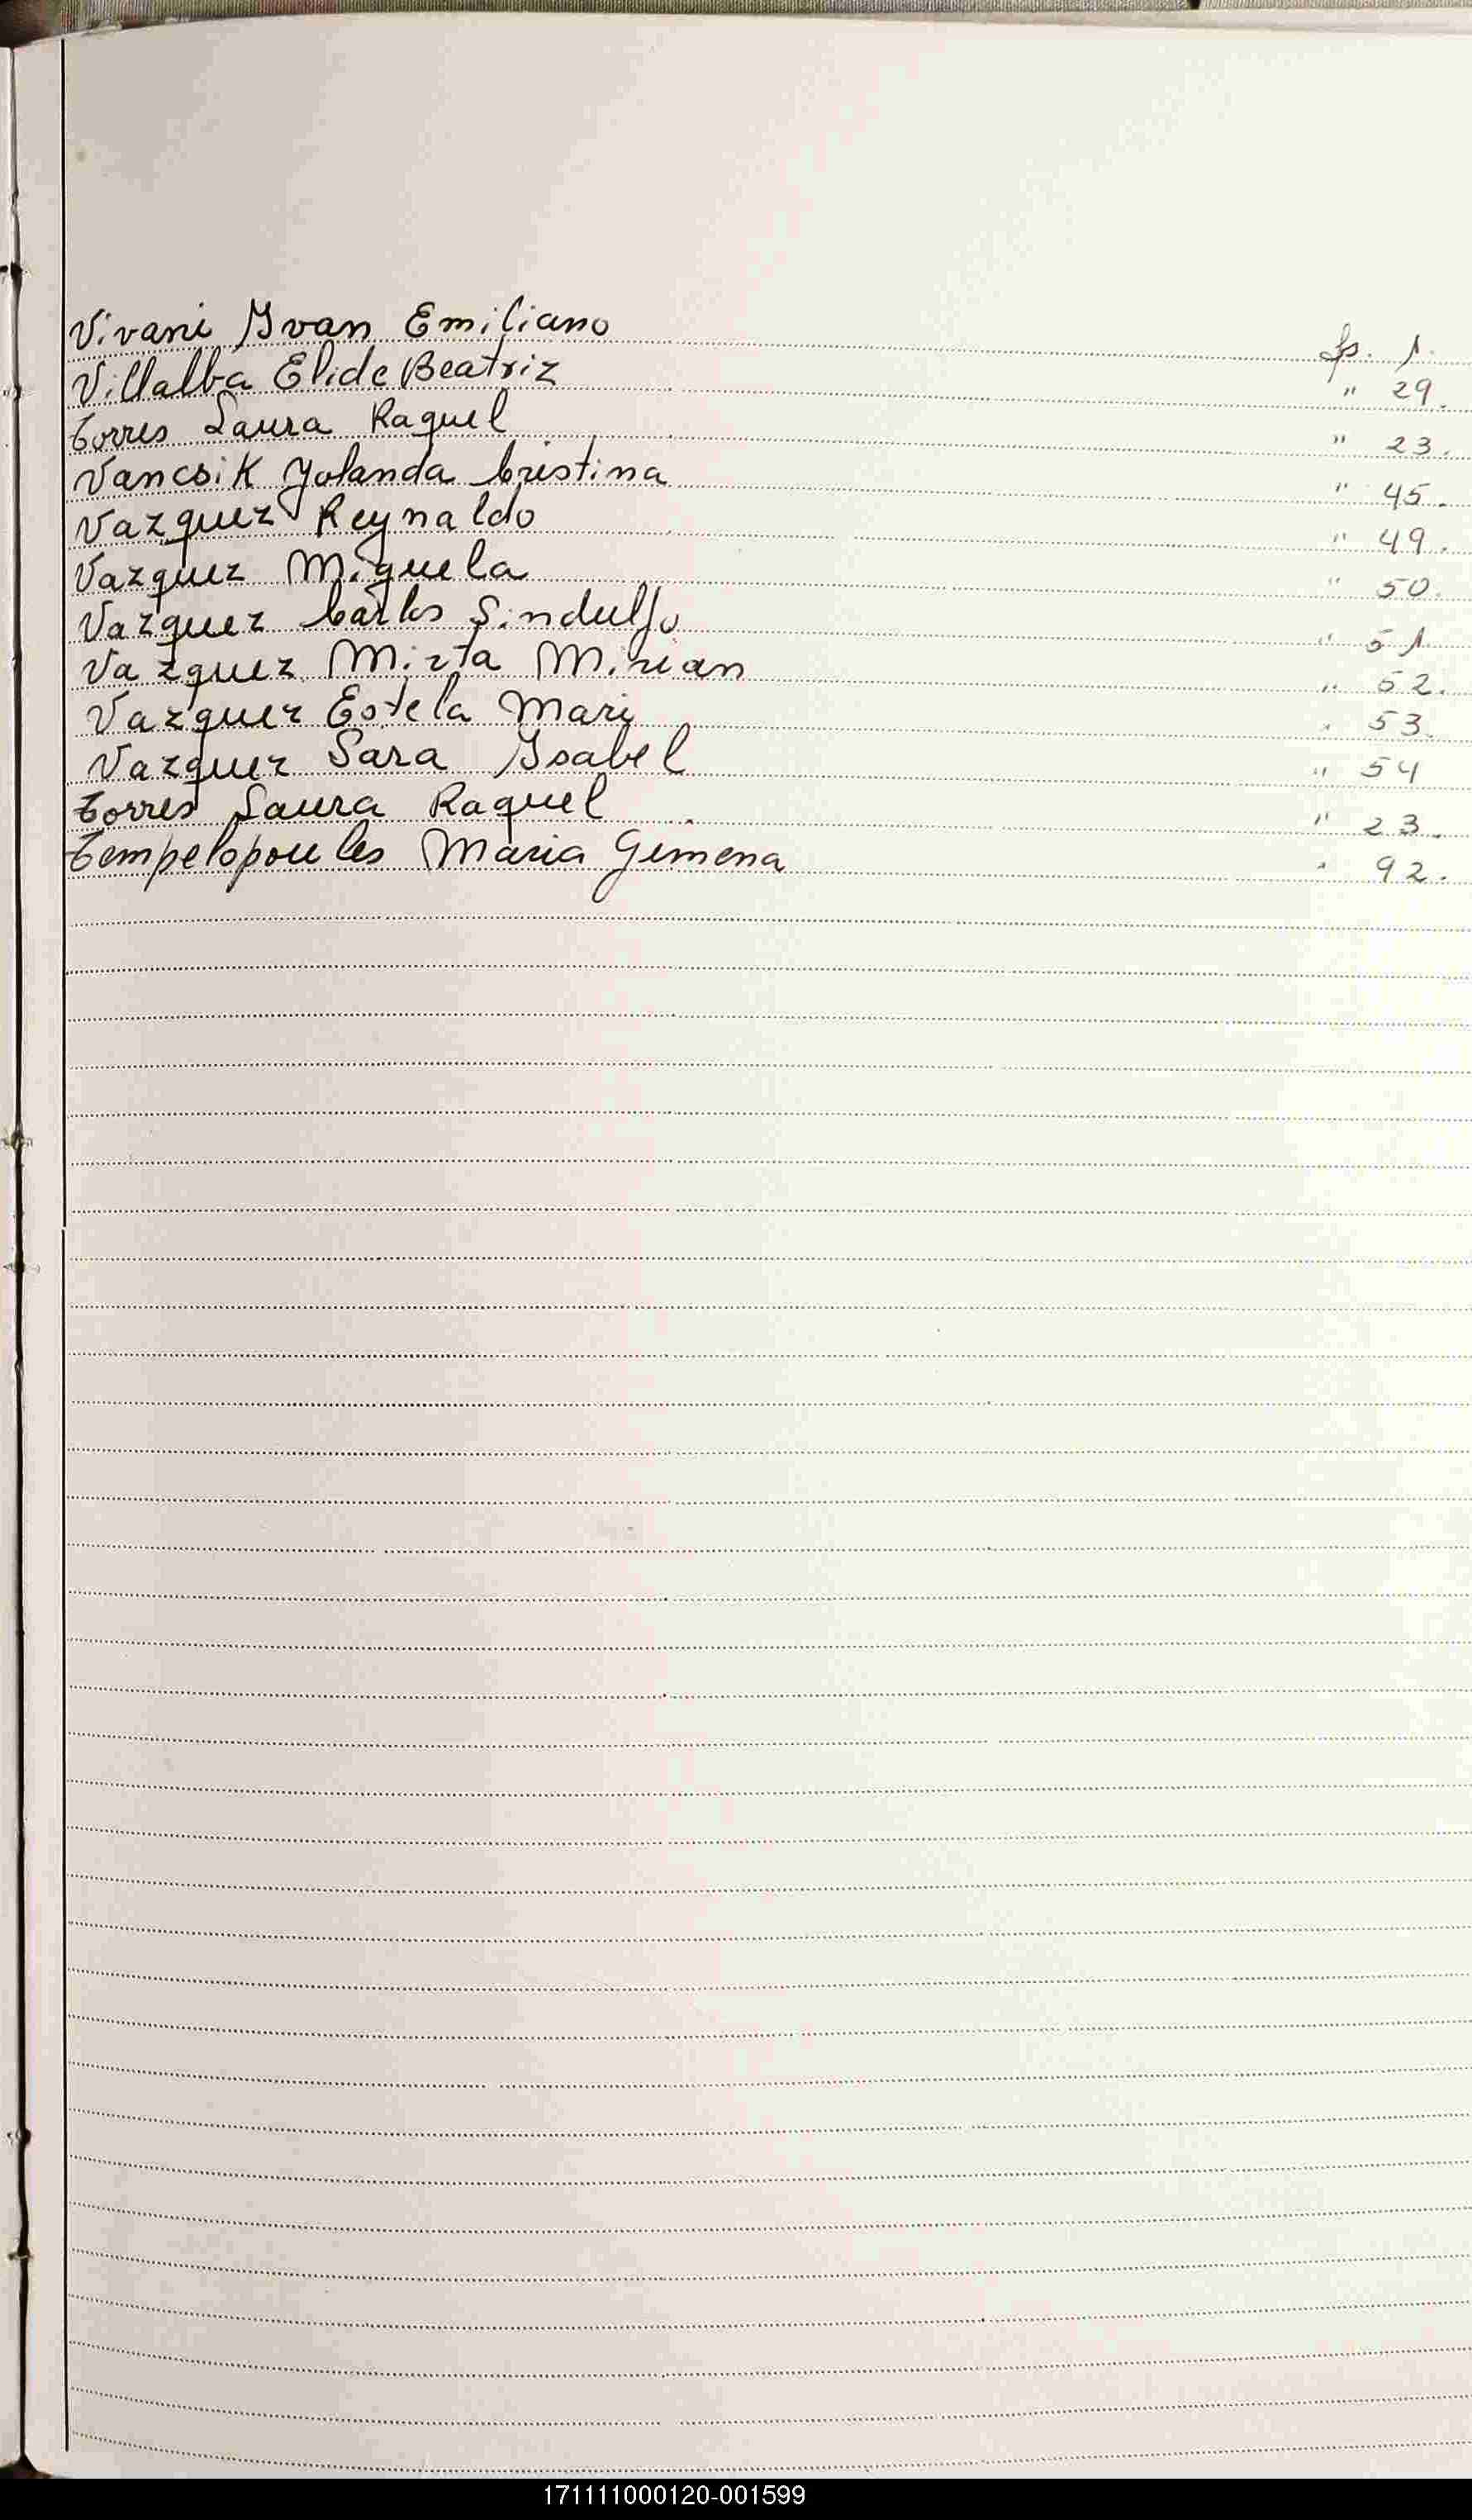 Vivani Ivan Emiliano fs. 1.
Villalba Elide Beatriz " 29.
Torres Laura Raquel " 23.
Vancsik Yolanda Cristina " 45.
Vazquez Reynaldo " 49.
Vazquez Miguela " 50.
Vazquez Carlos Sindulfo " 51.
Vazquez Mirta Mirian " 52.
Vazquez Estela Mari " 53.
Vazquez Sara Isabel " 54
Torres Laura Raquel " 23.
Tempelopoulos Maria Gimena " 92.
171111000120-001599